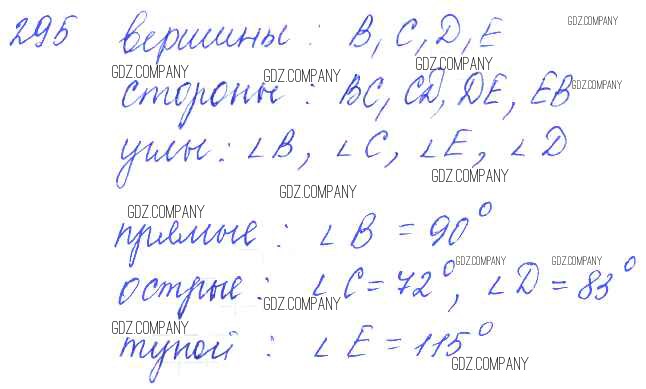 295 вершины : B, C, D, E GDZ.COMPANY
GDZ.COMPANY GDZ.COMPANY GDZ.COMPANY
стороны : BC, CD, DE, EB GDZ.COMPANY
углы : ∠B, ∠C, ∠E, ∠D
GDZ.COMPANY GDZ.COMPANY
GDZ.COMPANY
прямые : ∠B = 90°
GDZ.COMPANY GDZ.COMPANY
острые : ∠C = 72°, ∠D = 83°
GDZ.COMPANY GDZ.COMPANY
тупой : ∠E = 115°
GDZ.COMPANY